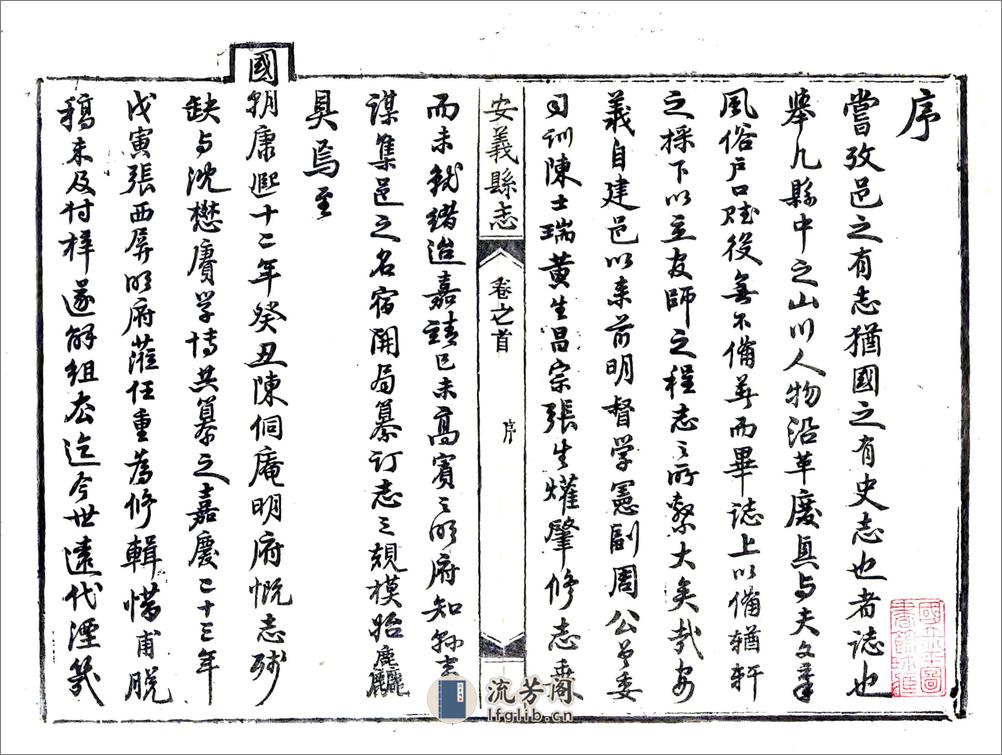 序
嘗攷邑之有志猶國之有史志也者誌也
舉凡縣中之山川人物沿革廢興与夫文章
風俗戶口賦役無不備而畢誌上以備輶軒
之採下以立友師之程志之所繫大矣哉安
義自建邑以来前明督學憲副周公曾委
司訓陳士瑞黃生昌宗張生爟肇修志乘
安義縣志 卷之首 序
而未就緒迨嘉靖己未高賓之明府知縣事
謀集邑之名宿開局纂訂志之規模始麤
具焉至
國朝康熙十二年癸丑陳侗庵明府慨志殘
缺与沈懋賡学博共纂之嘉慶二十三年
戊寅張西屏明府蒞任重為修輯惜甫脫
稿未及付梓遂解組去迄今世遠代湮幾
流芳阁
lfglib.cn